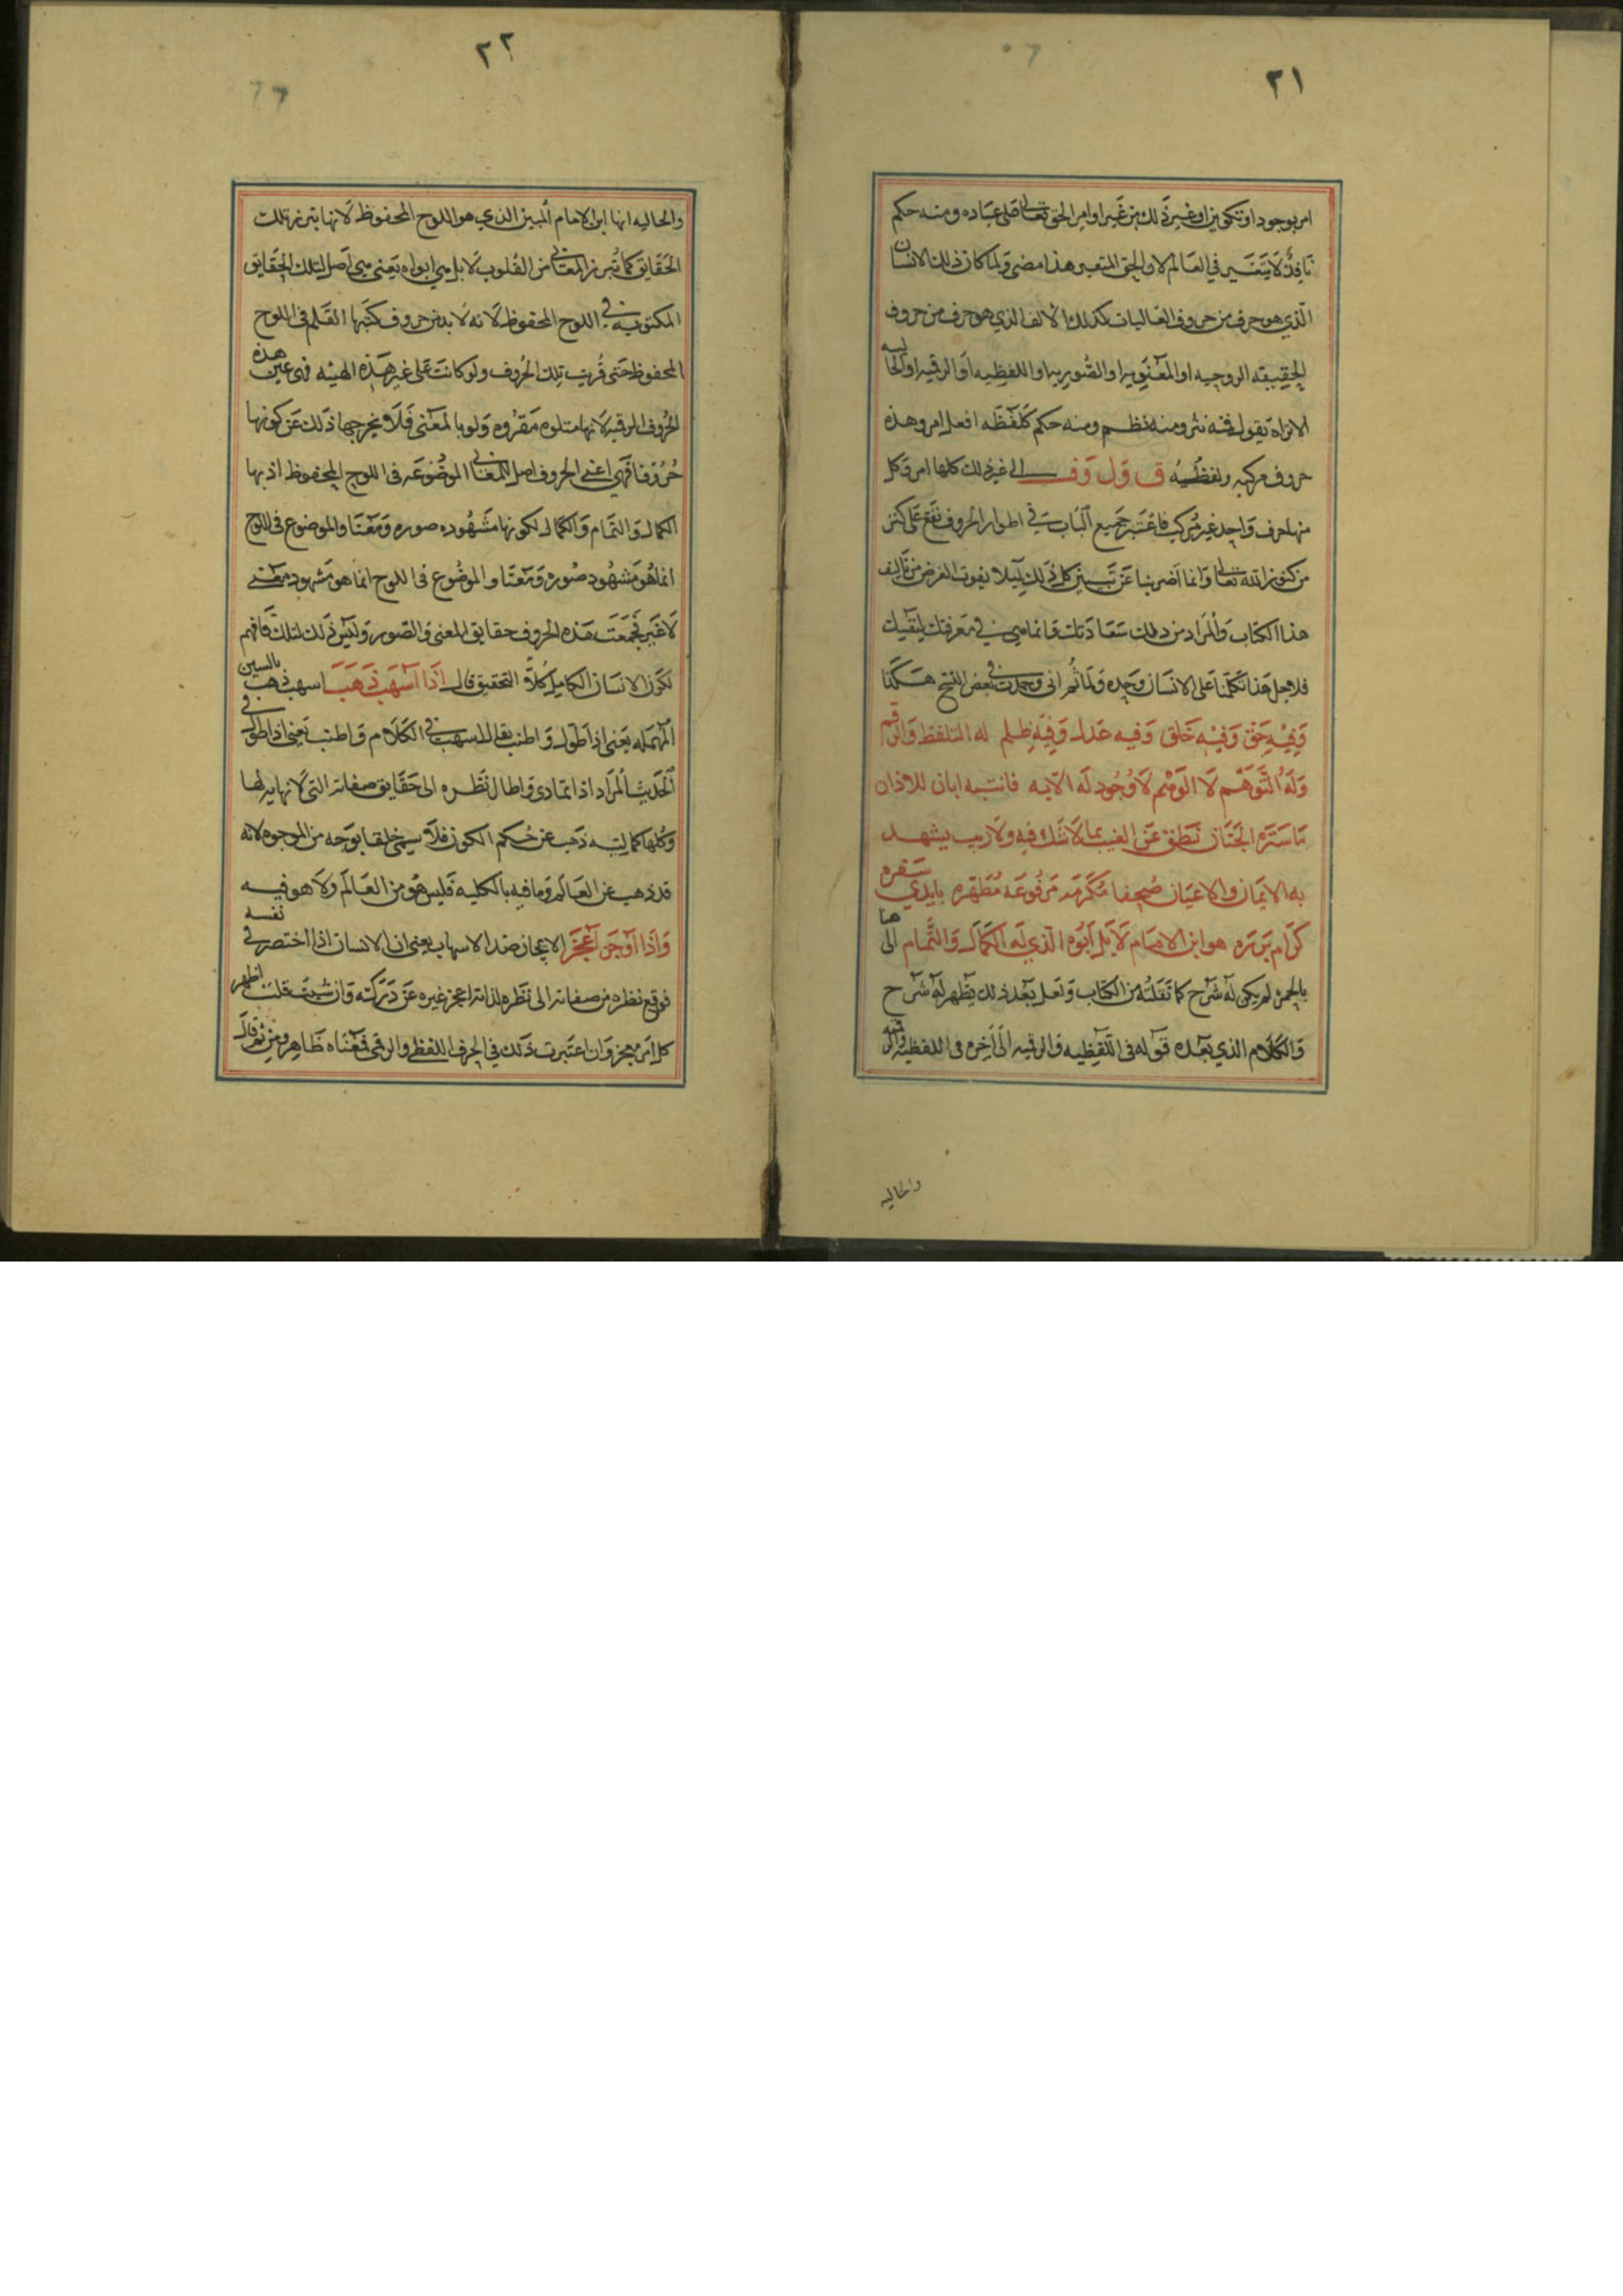 ٢١
امر بوجود او تكوين او غير ذلك من غير اوامر الحق تعالى على عباده ومنه حكم
نافذ لا يتغير في العالم لا والحق المتعين هذا مضى ولما كان ذلك الانسان
الذي هو حرف من حروف العاليات كذلك الالف الذي هو حرف من حروف
الحقيقيه الروحيه او المعنويه او الصوريه او اللفظيه او الرقميه او الحاليه
الا تراه يقول فمنه نثر ومنه نظم ومنه حكم كلفظه افعل امر وهذه
حروف مركبه ولفظيه ق وَل وَف الى غير ذلك كلها امر وكل
منها حرف واحد غير مركب فاعتبر جميع الباب في اطوار الحروف تقع على كنز
من كنوز الله تعالى وانما اضربنا عن تبيين كل ذلك ليلا يفوت الغرض من تاليف
هذا الكتاب والمراد من ذلك سعادتك وانما هي في معرفتك لنفسك
فلاجل هذا تكلمنا على الانسان وحده ولما ثم اني وجدت في بعض النسخ هكذا
وفيه حق وفيه خلق وفيه عدل وفيه ظلم له التلفظ والرقم
وله التوهم لا الوهم لا وجود له الايه فانتبه ابان للاذان
ما ستره الجنان نطق عن الغيب بما لا شك فيه ولا ريب يشهد
به الايمان والاعيان صحفا مكرمه مرفوعه مطهره بايدي سفره
كرام برره هو ابن الامام لا بل ابوه الذي له الكمال والتمام الى ها
بالحمره لم يكن له شرح كما نقلته من الكتاب ولعل بعد ذلك يظهر له شرح
والكلام الذي بعده قوله في اللفظيه والرقميه الى اخره في اللفظيه والرقميه
والحاليه
٢٢
والحاليه انها ابن الامام المبين الذي هو اللوح المحفوظ لانها تبرز تلك
الحقايق كما تبرز المعاني من القلوب لا بل هي ابواه يعني هي اصل لتلك الحقايق
المكتوبه في اللوح المحفوظ لانه لا بد من حروف كتبها القلم في اللوح
المحفوظ حتى قريت تلك الحروف ولو كانت على غير هذه الهيئه فهى عين هذه
الحروف الرقميه لانها متلوه مقروه ولو بالمعنى فلا يخرجها ذلك عن كونها
حروفا فهي اعني الحروف اصل المعاني الموضوعه في اللوح المحفوظ اذ بها
الكمال والتمام والكمال لكونها مشهوده صوره ومعنا والموضوع في اللوح
انما هو مشهود صوره ومعنا والموضوع في اللوح انما هو مشهود معنى
لا غير فجمعت هذه الحروف حقايق المعنى والصور وليس ذلك لتلك فافهم
لكون الانسان الكامل كلا التحقيق قال اذا اسهب ذهب اسهب ذهب بالسين
المهمله يعني اذا طول واطنب يقال اسهب في الكلام واطنب يعني اذا طول في
الحديث المراد اذا تمادى واطال نظره الى حقايق صفاته التي لا نهايه لها
وكلها كماليه ذهب عن حكم الكون فلا يسمى خلقا بوجه من الوجوه لانه
قد ذهب عن العالم وما فيه بالكليه فليس هو من العالم ولا هو فيه
واذا اوجز اعجز الايجاز ضد الاسهاب يعني ان الانسان اذا اختصر في نفسه
فوقع نظره من صفاته الى نظره لذاته اعجز غيره عن دركته وان شيت قلت اظهر
كل امر معجز وان اعتبرت ذلك في الحرف اللفظي والرقمي فمعناه ظاهر ومن ثم قال